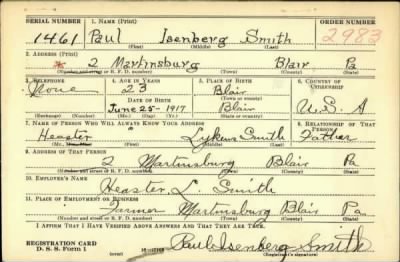 SERIAL NUMBER 1. NAME (Print) ORDER NUMBER
1461 Paul Isenberg Smith 2983
(First) (Middle) (Last)
2. ADDRESS (Print)
2 Martinsburg Blair Pa
(Number and street or R. F. D. number) (Town) (County) (State)
3. TELEPHONE 4. AGE IN YEARS 5. PLACE OF BIRTH 6. COUNTRY OF CITIZENSHIP
None 23 Blair
DATE OF BIRTH (Town or county)
June 25-1917 Blair U.S.A
(Exchange) (Number) (Mo.) (Day) (Yr.) (State or country)
7. NAME OF PERSON WHO WILL ALWAYS KNOW YOUR ADDRESS 8. RELATIONSHIP OF THAT PERSON
Heaster Lykens Smith Father
(Mr., Mrs., Miss) (First) (Middle) (Last)
9. ADDRESS OF THAT PERSON
2 Martinsburg Blair Pa
(Number and street or R. F. D. number) (Town) (County) (State)
10. EMPLOYER'S NAME
Heaster L. Smith
11. PLACE OF EMPLOYMENT OR BUSINESS
Farmer Martinsburg Blair Pa
(Number and street or R. F. D. number) (Town) (County) (State)
I AFFIRM THAT I HAVE VERIFIED ABOVE ANSWERS AND THAT THEY ARE TRUE.
REGISTRATION CARD
D. S. S. Form 1 Paul Isenberg Smith
(Registrant's signature)